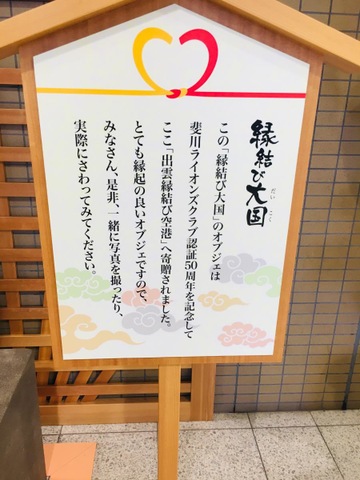 縁結び大国
だいこく
この「縁結び大国」のオブジェは
斐川ライオンズクラブ認証50周年を記念して
ここ「出雲縁結び空港」へ寄贈されました。
とても縁起の良いオブジェですので、
みなさん、是非、一緒に写真を撮ったり、
実際にさわってみてください。